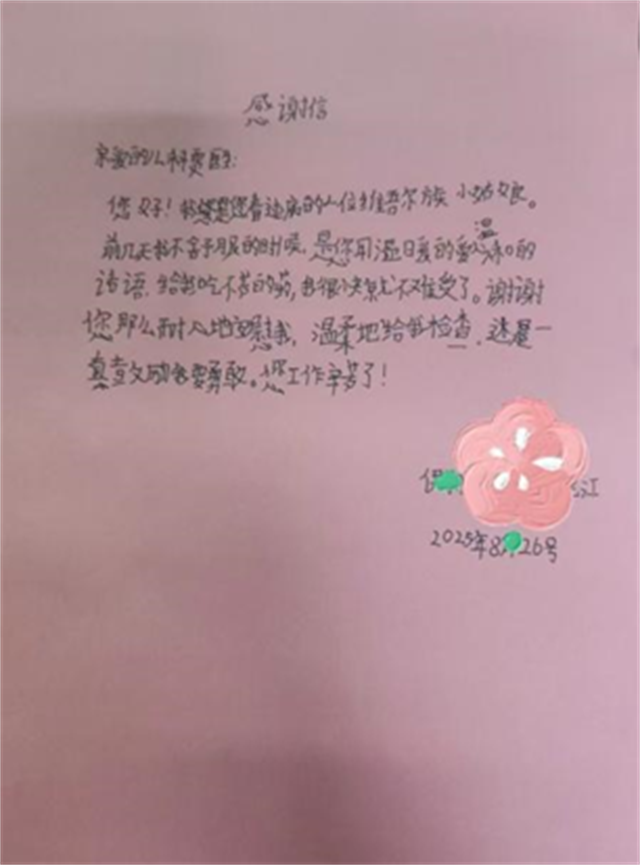 感谢信
亲爱的儿科夏医生:
您好!我是您看过病的一位维吾尔族小姑娘。
前几天我不舒服的时候,是你用温暖的
温和的
话语,给我吃不苦的药,我很快就不难受了。谢谢
您那么耐心地安慰我,温柔地给我检查,还
一直鼓励我要勇敢。您工作辛苦了!
江
2025年8 26号